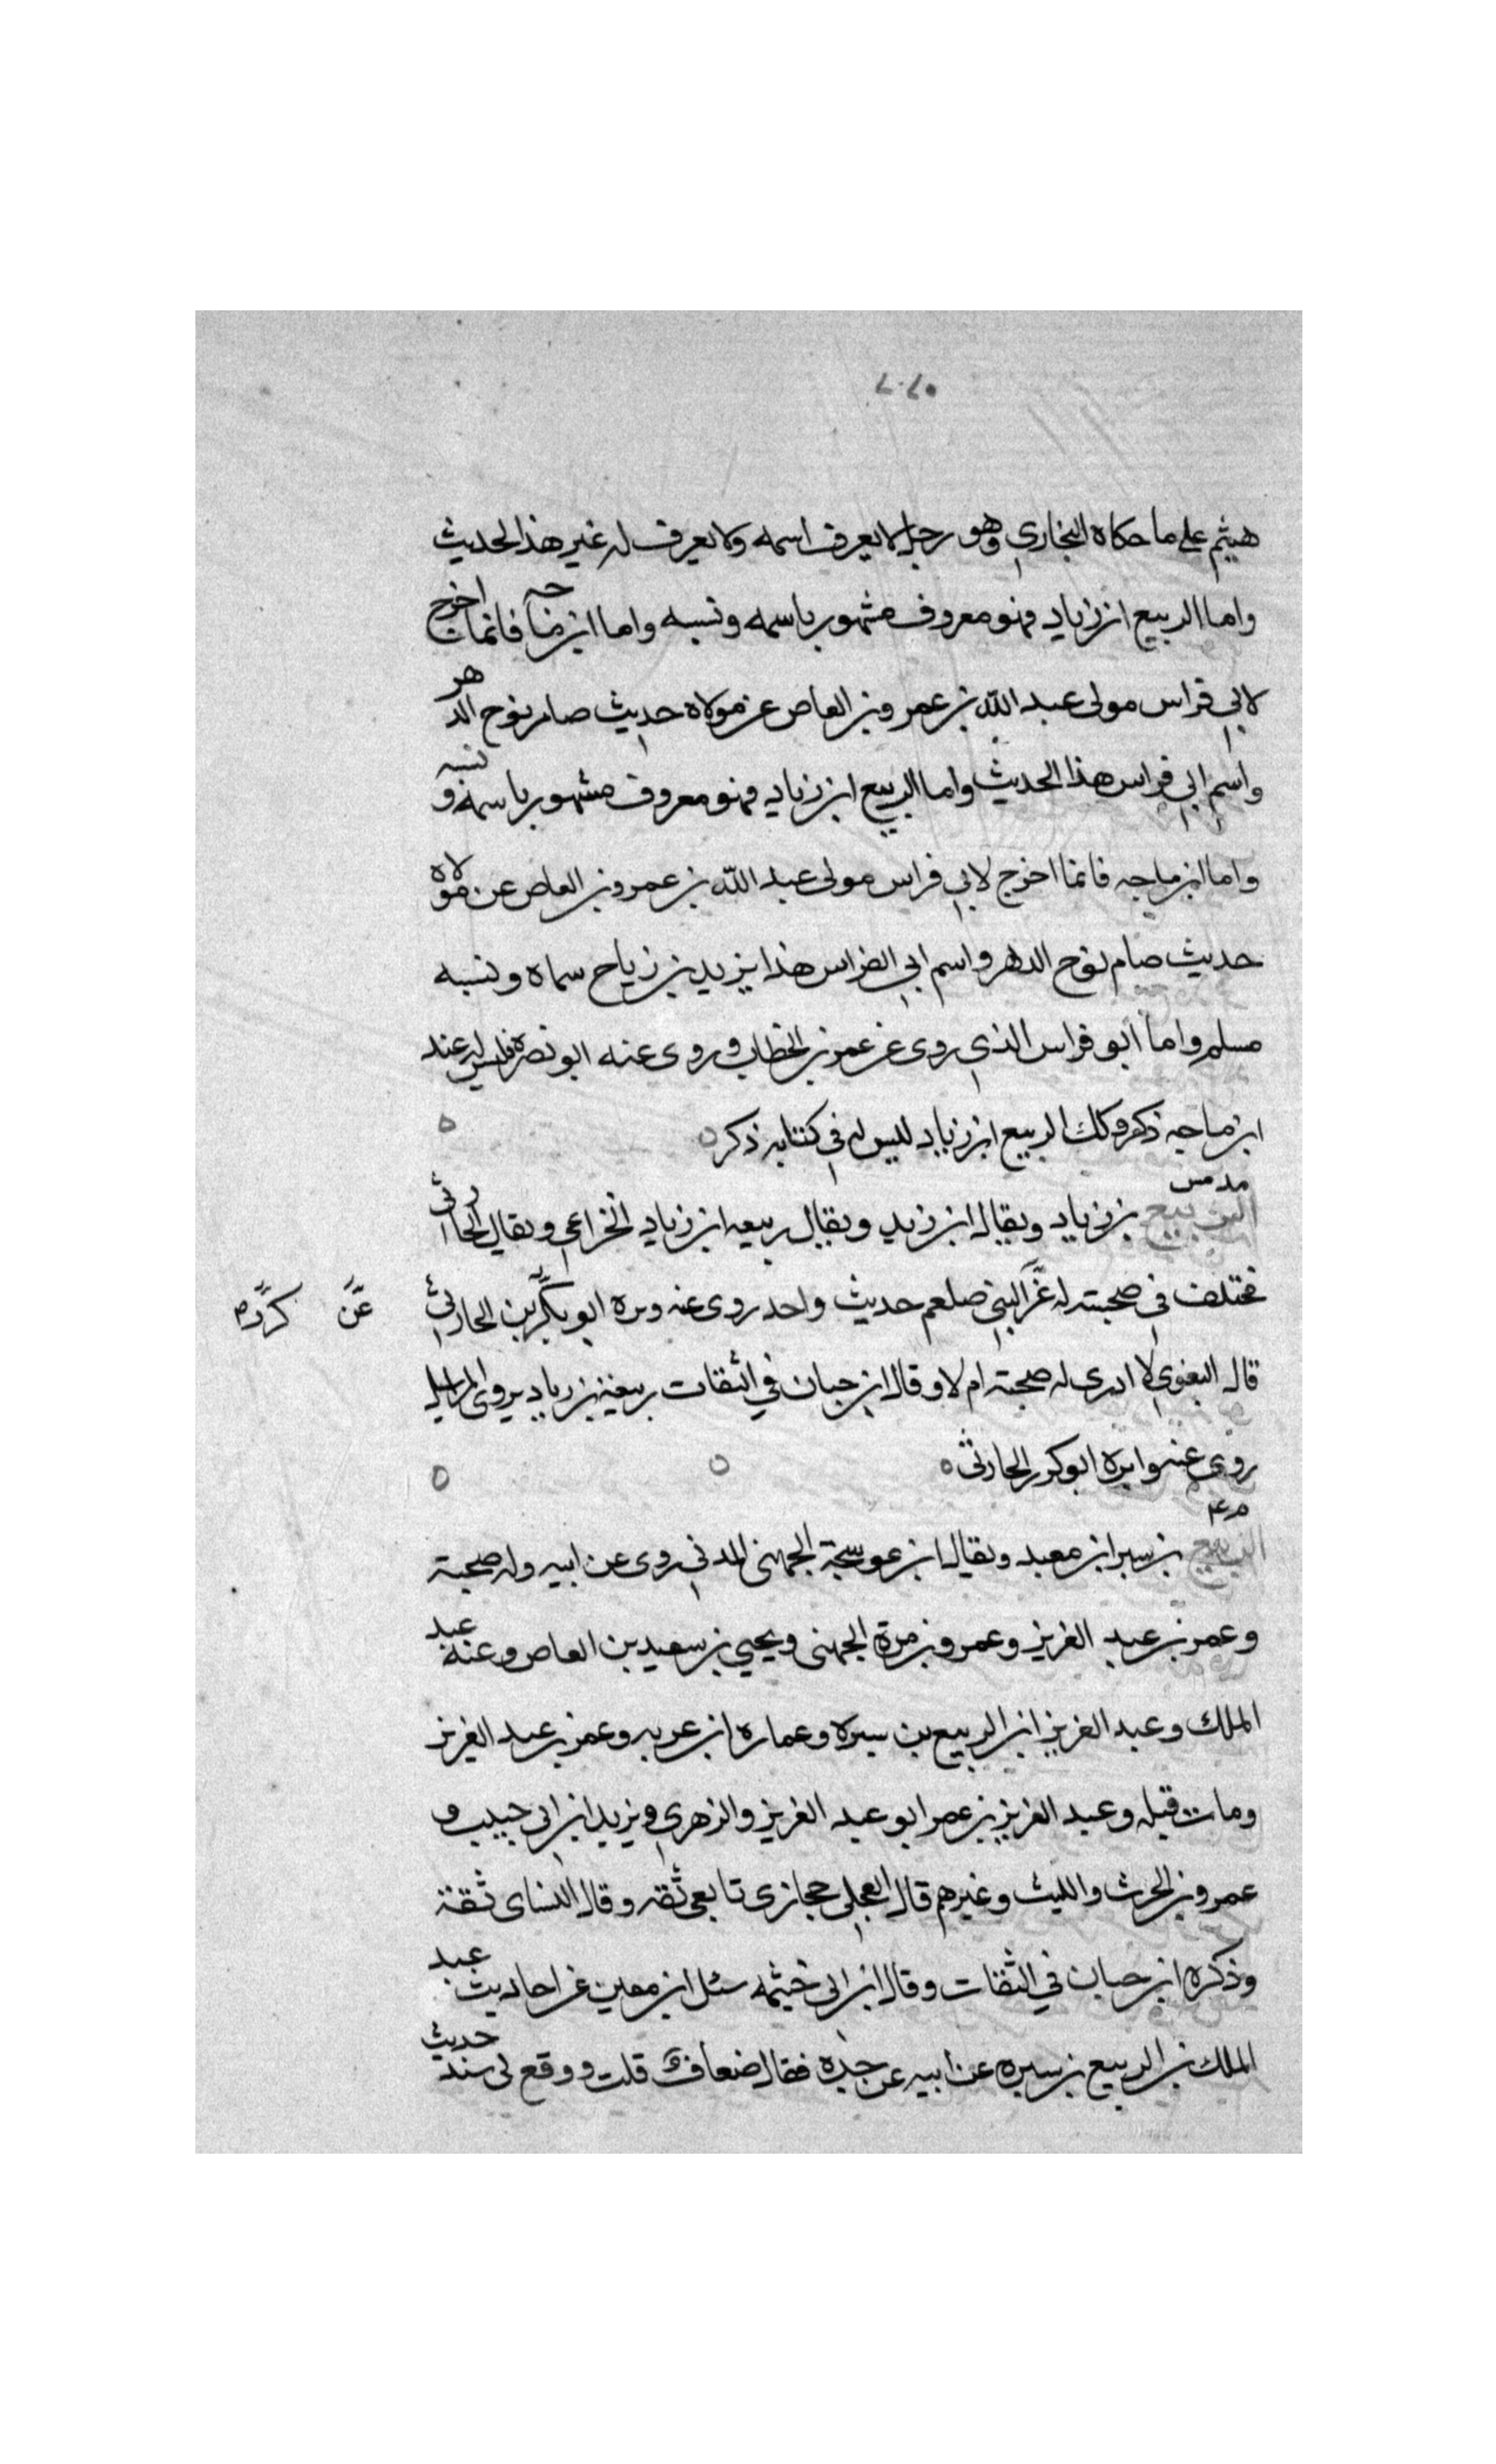 هيثم على ما حكاه البخاري وهو رجل لا يعرف اسمه ولا يعرف له غير هذا الحديث
واما الربيع ابن زياد فهو معروف مشهور باسمه ونسبه واما ابن ماجه فانما اخرج
لابي فراس مولى عبد الله بن عمرو بن العاص عن مولاه حديث صام نوح الدهر
واسم ابي فراس هذا الحديث واما الربيع ابن زياد فهو معروف مشهور باسمه ونسبه
واما ابن ماجه فانما اخرج لابي فراس مولى عبد الله بن عمرو بن العاص عن مولاه
حديث صام نوح الدهر واسم ابي الفراس هذا يزيد بن زياح سماه ونسبه
مسلم واما ابو فراس الذي روى عن عمر بن الخطاب وروى عنه ابو نضرة فليس له عند
ابن ماجه ذكر وكك الربيع ابن زياد لليس له في كتابه ذكر
مد س
الربيع بن زياد ويقال ابن زيد ويقال ربيعه ابن زياد الخزاعي ويقال الحارثي
مختلف في صحبته له عن النبي صلعم حديث واحد روى عنه وبره ابو بكر بن الحارثي
عن كرز م
قال البغوي لا ادرى له صحبته ام لا وقال ابن حبان في الثقات ربيعة بن زياد يروى المراسيل
روى عنه وابره ابو كرر الحارثي
م ٤
الربيع بن سبر ابن معبد ويقال ابن عوسجة الجهنى المدني روى عن ابيه وله صحبة
وعمر بن عبد العزيز وعمرو بن مرة الجهنى ويحيي بن سعيد بن العاص وعنه عبد
الملك وعبد العزيز ابن الربيع بن سبره وعماره ابن عربه وعمر بن عبد العزيز
ومات قبله وعبد العزيز بن عمر ابو عبد العزيز والزهري ويزيد ابن ابي حبيب و
عمرو بن الحرث والليث وغيرهم قال العجلى حجازى تابعى ثقه وقال النساى ثقة
وذكره ابن حبان في الثقات وقال ابن ابى خيثمه سئل ابن معين عن احاديث عبد
الملك بن الربيع بن سبره عن ابيه عن جده فقال ضعاف قلت ووقع لى سند حديث